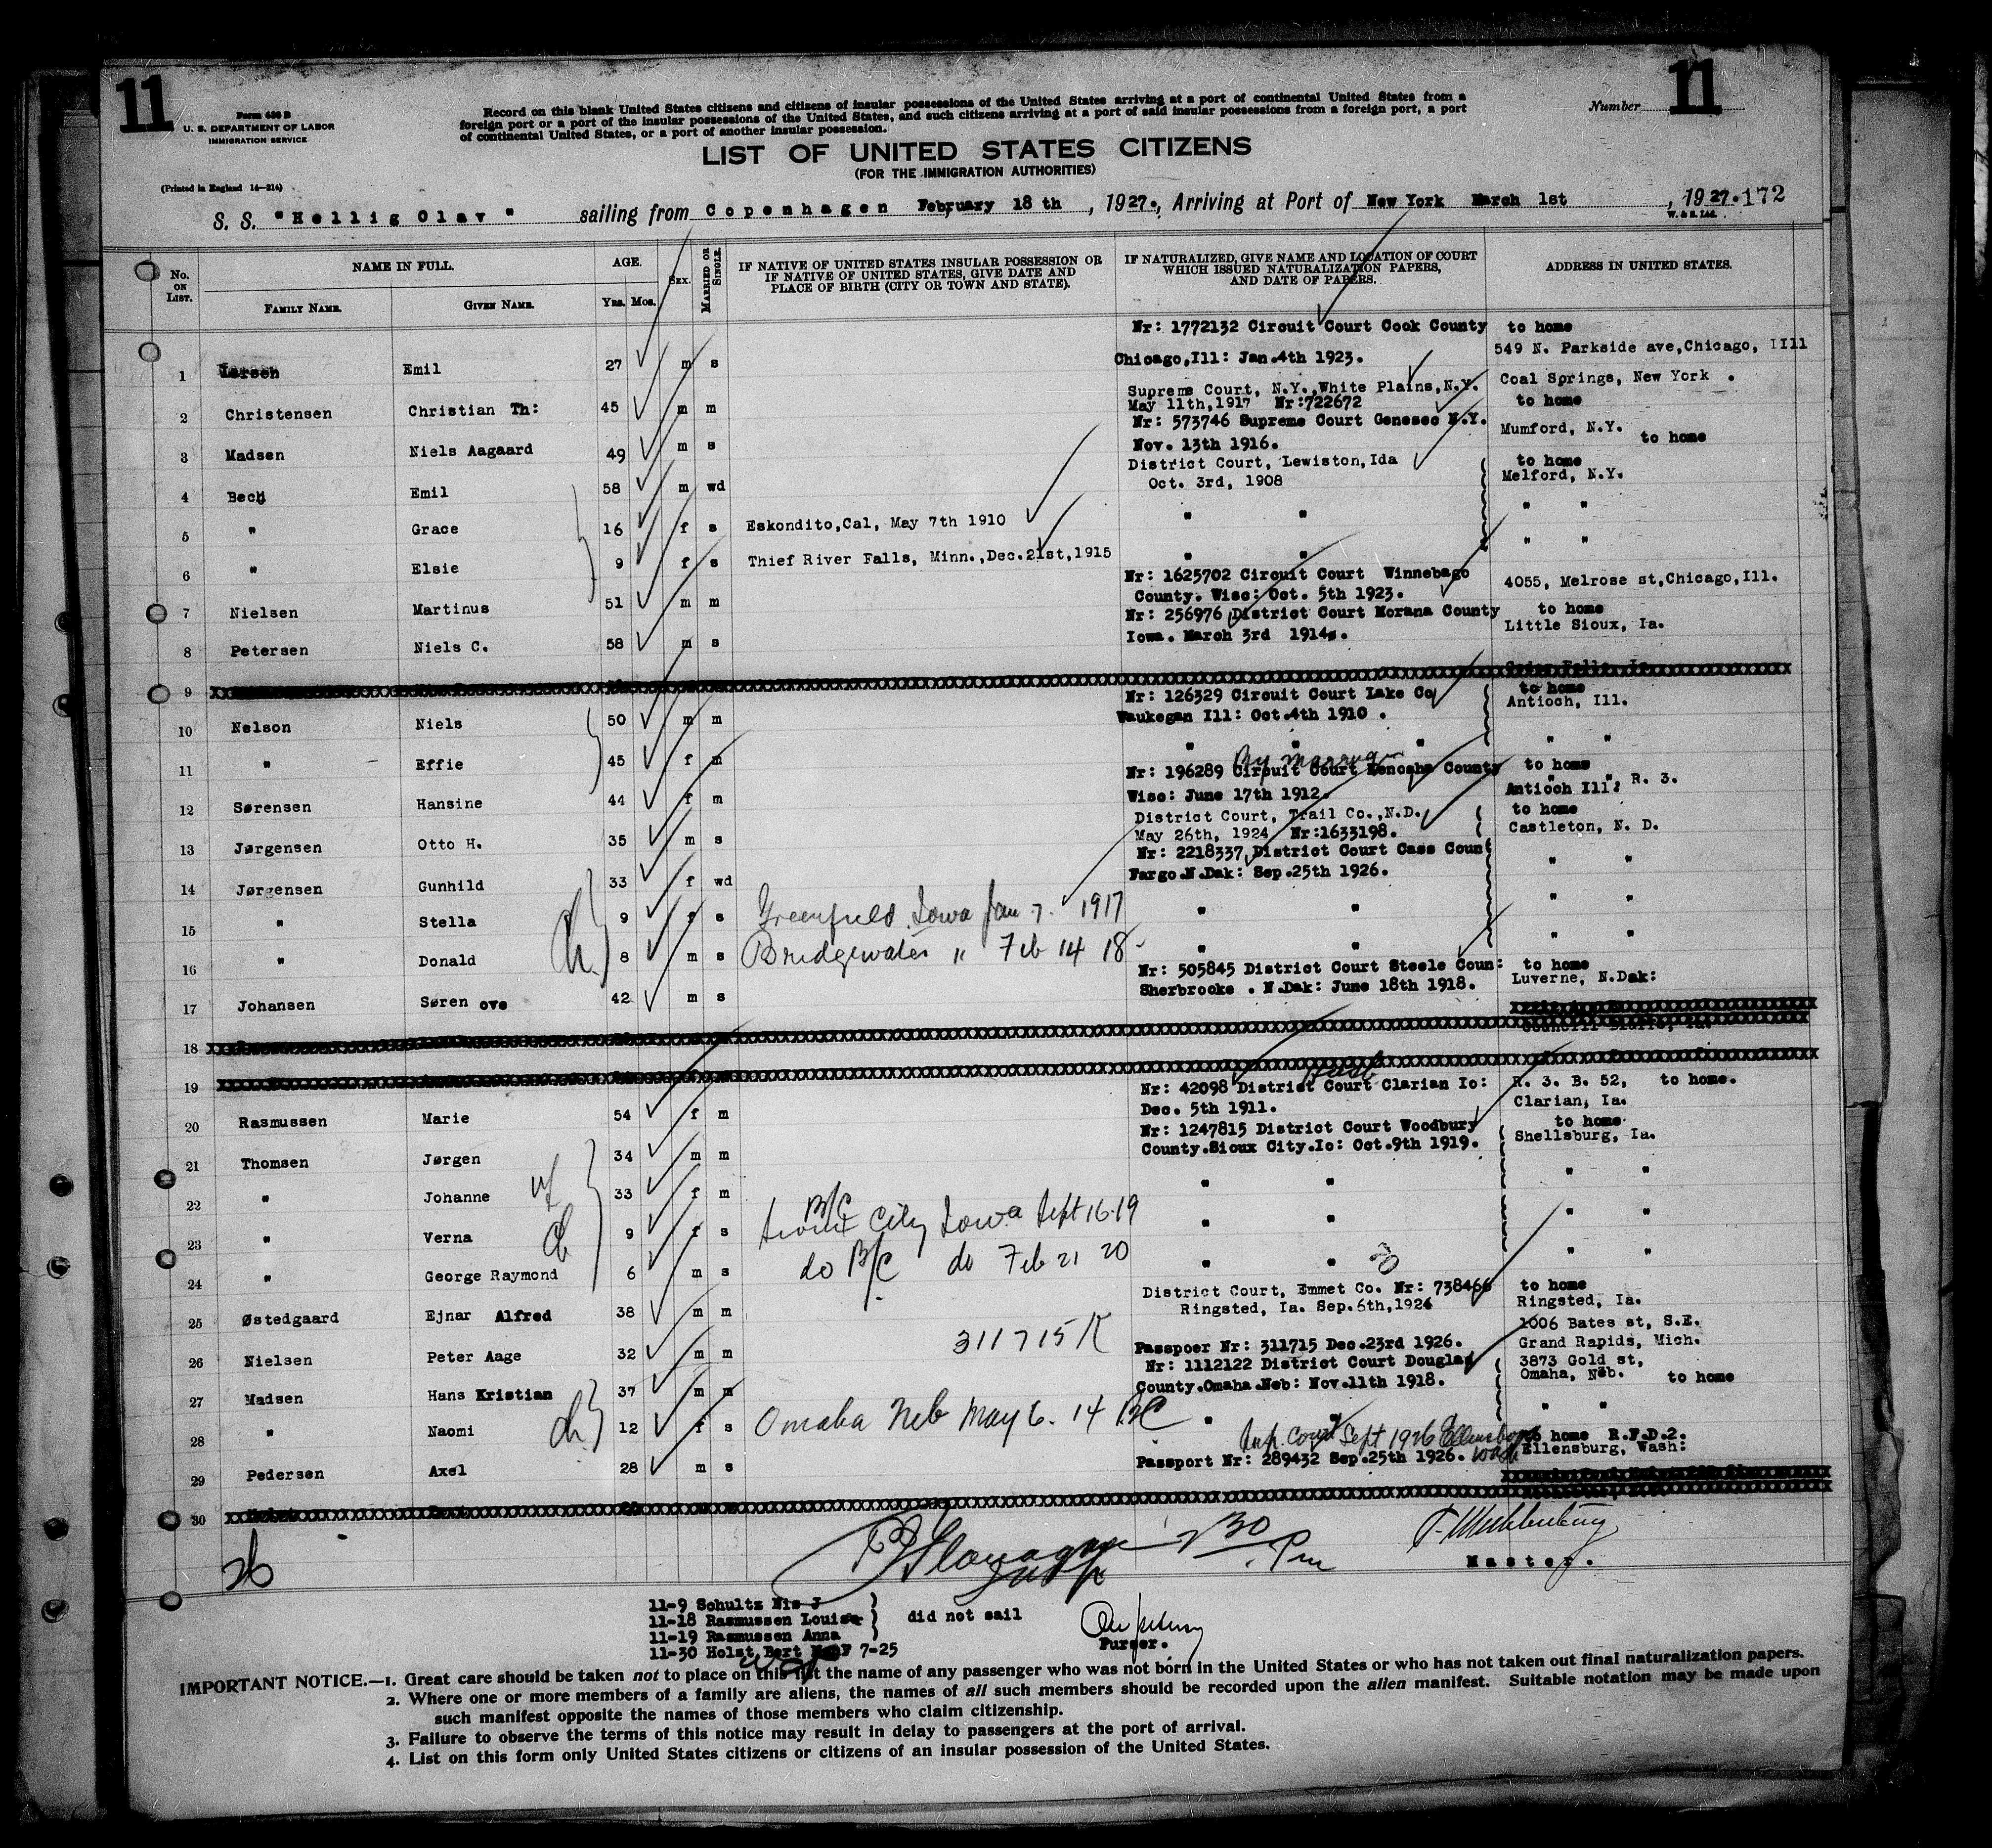 11
11
Form 630 B
U. S. DEPARTMENT OF LABOR
IMMIGRATION SERVICE
(Printed in England 14—214)
Record on this blank United States citizens and citizens of insular possessions of the United States arriving at a port of continental United States from a
foreign port or a port of the insular possessions of the United States, and such citizens arriving at a port of said insular possessions from a foreign port, a port
of continental United States, or a port of another insular possession.
Number
LIST OF UNITED STATES CITIZENS
(FOR THE IMMIGRATION AUTHORITIES)
S. S. "Hellig Olav" sailing from Copenhagen February 18 th, 1927., Arriving at Port of New York March 1st, 1927. 172
W. & S. Ltd.
No. ON LIST. NAME IN FULL. AGE. SEX. MARRIED OR SINGLE. IF NATIVE OF UNITED STATES INSULAR POSSESSION OR IF NATIVE OF UNITED STATES, GIVE DATE AND PLACE OF BIRTH (CITY OR TOWN AND STATE). IF NATURALIZED, GIVE NAME AND LOCATION OF COURT WHICH ISSUED NATURALIZATION PAPERS, AND DATE OF PAPERS. ADDRESS IN UNITED STATES.
FAMILY NAME. GIVEN NAME. YRS. MOS.
Nr: 1772132 Circuit Court Cook County to home
1 Emil 27 m s Chicago,Ill: Jan.4th 1923. 549 N. Parkside ave,Chicago, IIll
Supreme Court, N.Y.,White Plains,N.Y. Coal Springs, New York .
2 Christensen Christian Th: 45 m m May 11th,1917 Nr:722672 to home
Nr: 573746 Supreme Court Geneseo N.Y. Mumford, N.Y.
3 Madsen Niels Aagaard 49 m s Nov. 13th 1916. to home
District Court, Lewiston,Ida to home
4 Bech Emil 58 m wd Oct. 3rd, 1908 Melford, N.Y.
5 " Grace 16 f s Eskondito,Cal, May 7th 1910 " " " "
6 " Elsie 9 f s Thief River Falls, Minn.,Dec.21st,1915 " " " "
Nr: 1625702 Circuit Court Winnebago 4055, Melrose st,Chicago,Ill.
7 Nielsen Martinus 51 m m County. Wisc: Oct. 5th 1923.
Nr: 256976 District Court Morana County to home
8 Petersen Niels C. 58 m s Iowa. March 3rd 1914. Little Sioux, Ia.
9
Nr: 126329 Circuit Court Lake Co to home
10 Nelson Niels 50 m m Waukegan Ill: Oct.4th 1910 . Antioch, Ill.
11 " Effie 45 f m " " " " "
By marriage
Nr: 196289 Circuit Court Kenosha County to home
12 Sørensen Hansine 44 f m Wisc: June 17th 1912. Antioch Ill: R. 3.
District Court, Trail Co.,N.D. to home
13 Jørgensen Otto H. 35 m s May 26th, 1924 Nr:1633198. Castleton, N. D.
Nr: 2218337 District Court Cass Coun
14 Jørgensen Gunhild 33 f wd Fargo.N.Dak: Sep.25th 1926. " "
15 " Stella 9 f s Greenfield Iowa Jan 7. 1917 " " " "
16 " Donald 8 m s Bridgewater " Feb 14 18 " " " "
Nr: 505845 District Court Steele Coun: to home
17 Johansen Søren ove 42 m s Sherbrooke . N.Dak: June 18th 1918. Luverne, N.Dak:
18
19
Nr: 42098 District Court Clarian Io: R. 3. B. 52, to home.
20 Rasmussen Marie 54 f m Dec. 5th 1911. Clarian, Ia.
Nr: 1247815 District Court Woodbury to home
21 Thomsen Jørgen 34 m m County.Sioux City.Io: Oct.9th 1919. Shellsburg, Ia.
22 " Johanne wf 33 f m " " " "
B/C
23 " Verna 9 f s Sioux City Iowa Sept 16.19 " " " "
24 " George Raymond 6 m s do B/C do Feb 21 20 " " " "
District Court, Emmet Co. Nr: 738466 to home
25 Østedgaard Ejnar Alfred 38 m m Ringsted, Ia. Sep.6th,1926 Ringsted, Ia.
1006 Bates st, S.E.
26 Nielsen Peter Aage 32 m m 311715 Passpoer Nr: 311715 Dec.23rd 1926. Grand Rapids, Mich.
Nr: 1112122 District Court Douglas 3873 Gold st,
27 Madsen Hans Kristian 37 m m County.Omaha.Neb: Nov.11th 1918. Omaha, Neb. to home
28 " Naomi ch. 12 f s Omaha Neb May 6. 14 B/C " " " "
Sup. Court Sept 1926 Ellensburg Wash to home R.F.D.2.
29 Pedersen Axel 28 m s Passport Nr: 289432 Sep.25th 1926. Ellensburg, Wash:
30
26
2 30 Pm
Master.
11-9 Schultz Nis J
11-18 Rasmussen Louise
11-19 Rasmussen Anna
did not sail
11-30 Holst Bert 7-25
Purser.
IMPORTANT NOTICE.—1. Great care should be taken not to place on this list the name of any passenger who was not born in the United States or who has not taken out final naturalization papers.
2. Where one or more members of a family are aliens, the names of all such members should be recorded upon the alien manifest. Suitable notation may be made upon
such manifest opposite the names of those members who claim citizenship.
3. Failure to observe the terms of this notice may result in delay to passengers at the port of arrival.
4. List on this form only United States citizens or citizens of an insular possession of the United States.